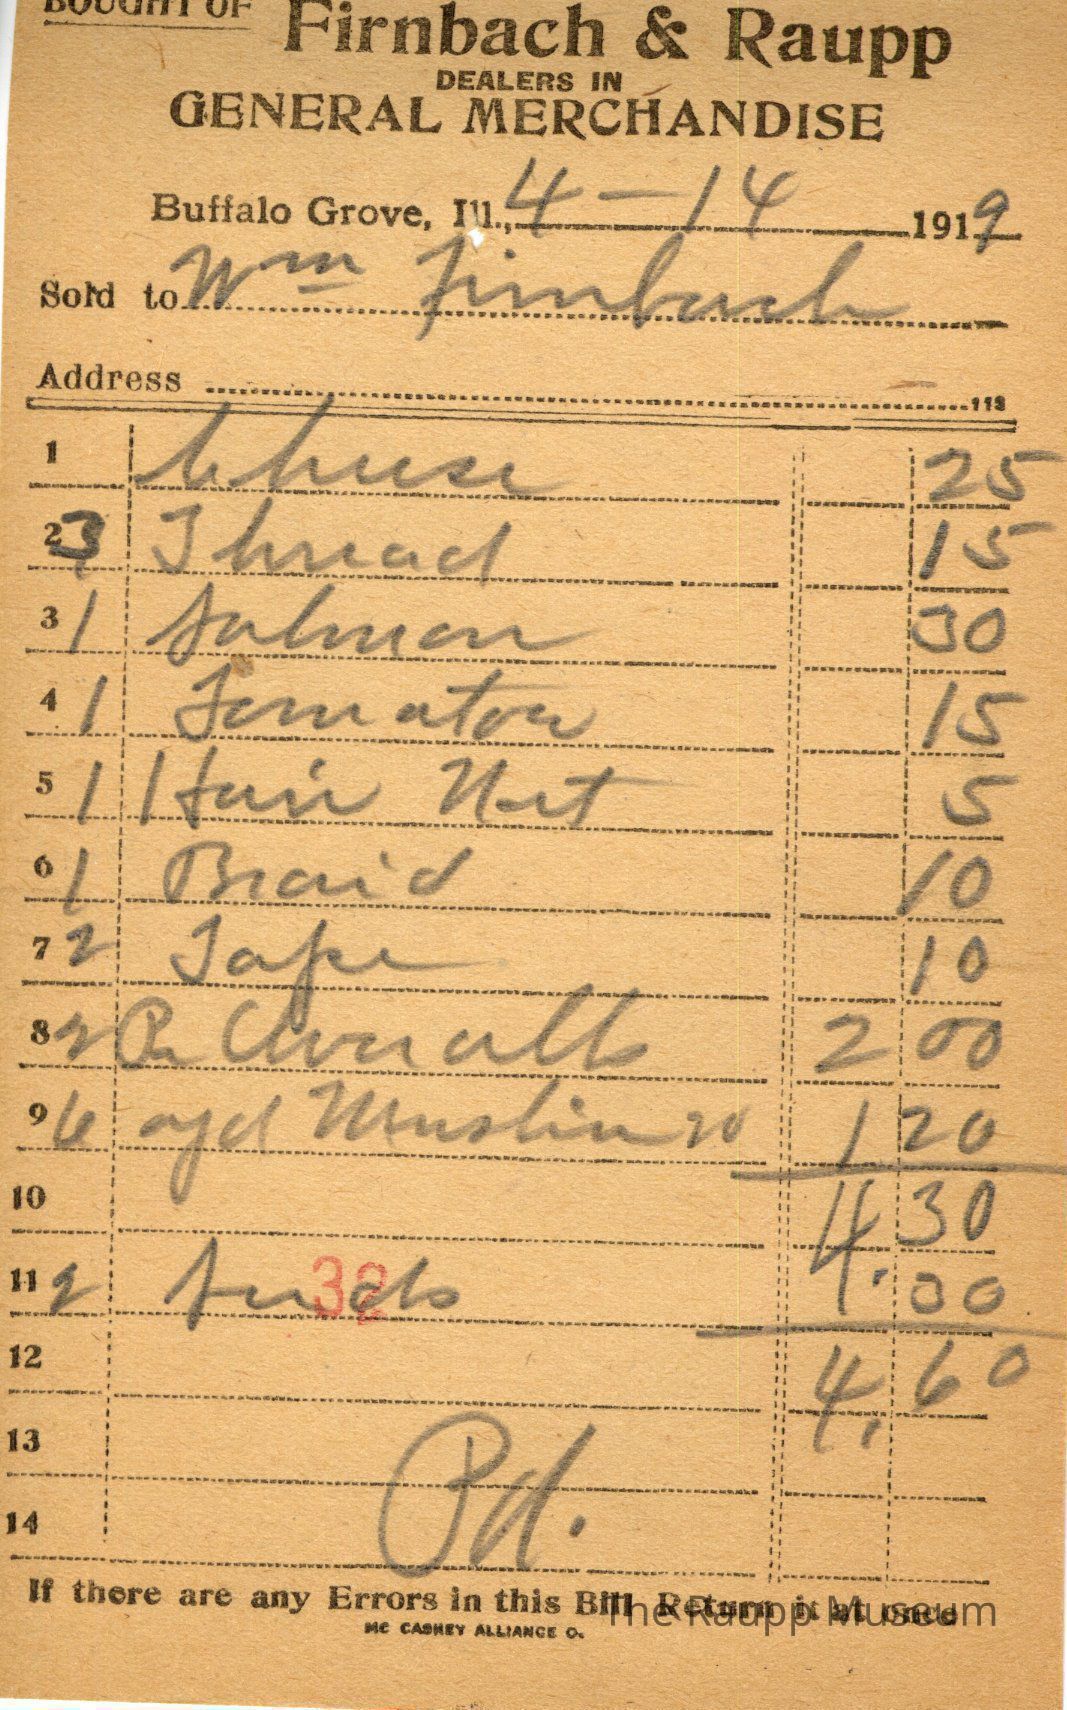 BOUGHT OF Firnbach & Raupp
DEALERS IN
GENERAL MERCHANDISE
Buffalo Grove, Ill., 4-14 1919
Sold to Wm Firnbach
Address
113
1 Cheese 25
2 3 Thread 15
3 1 Salmon 30
4 1 Tomatoe 15
5 1 Hair Net 5
6 1 Braid 10
7 2 Tape 10
8 2 Pr Overalls 2 00
9 6 yd Muslin 20 1 20
10 4.30
11 2 32 00
12 4.60
13
Pd.
14
If there are any Errors in this Bill Return it at once
MC CASKEY ALLIANCE O.
The Raupp Museum